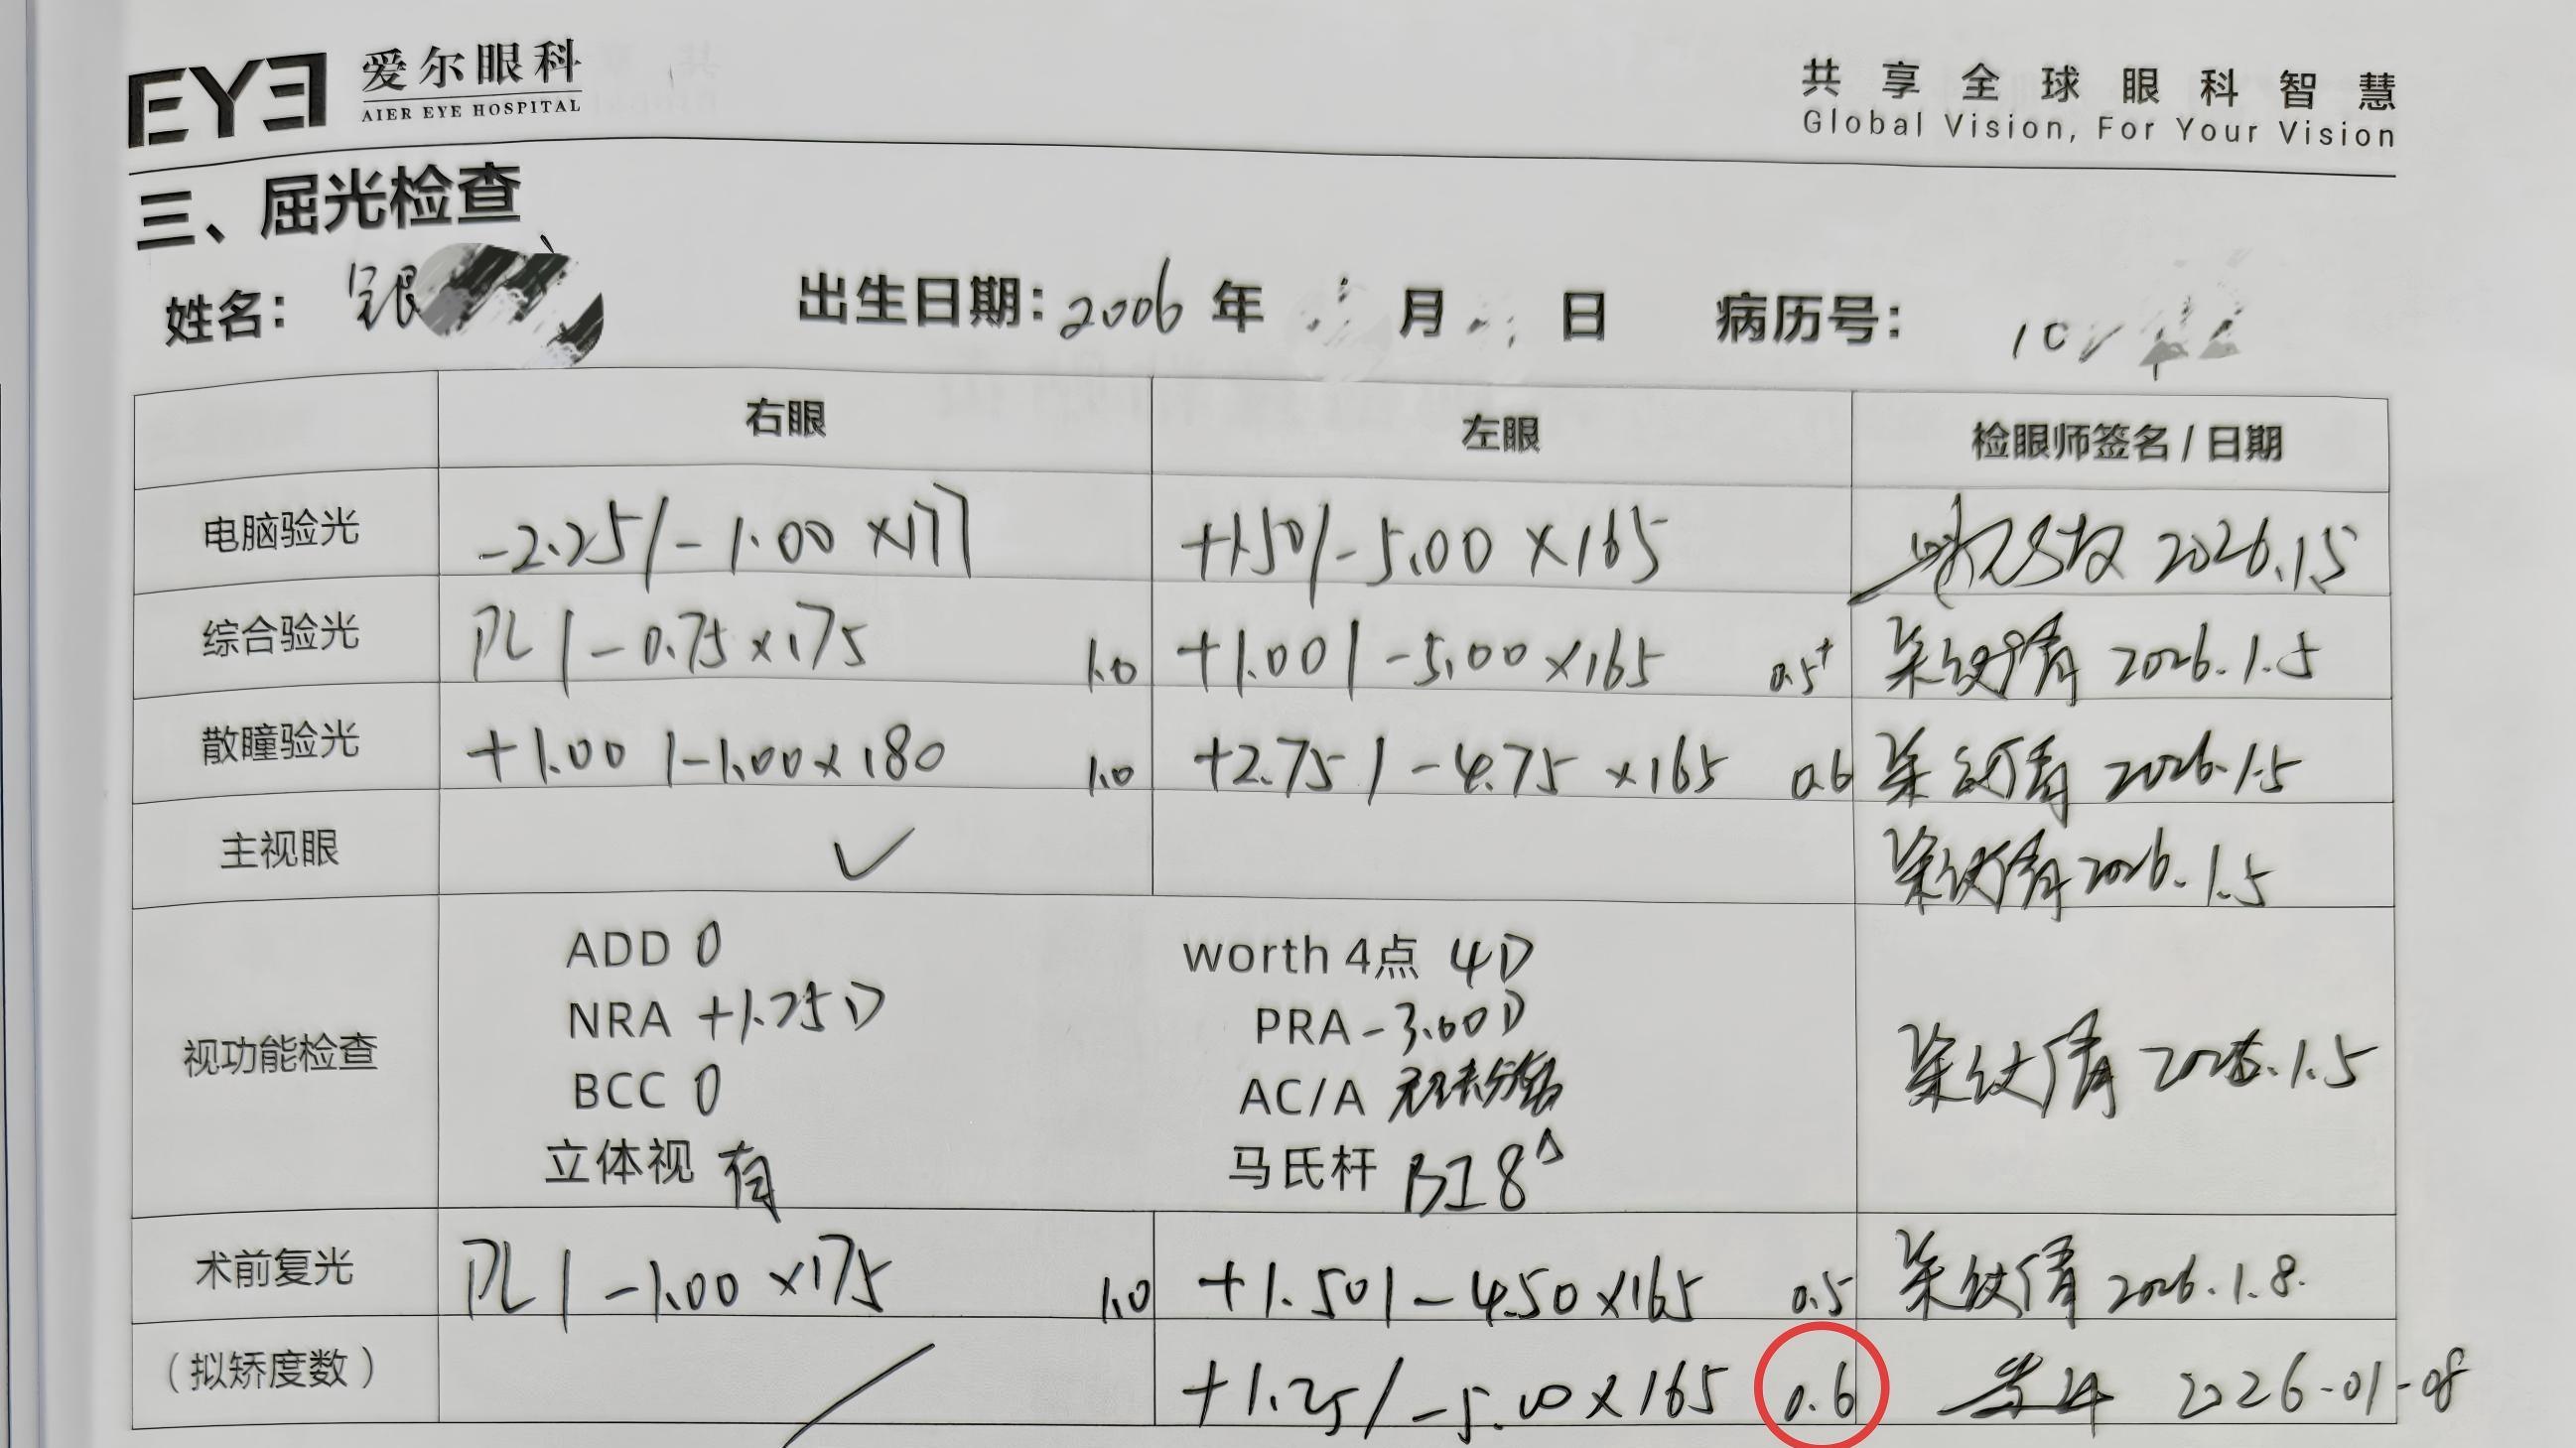 EYE 爱尔眼科
AIER EYE HOSPITAL
共享全球眼科智慧
Global Vision, For Your Vision
三、屈光检查
姓名： 出生日期：2006 年 月 日 病历号：
右眼 左眼 检眼师签名 / 日期
电脑验光 -2.25/-1.00×177 +1.50/-5.00×165 2026.1.5
综合验光 PL/-0.75×175 1.0 +1.00/-5.00×165 0.5+ 2026.1.5
散瞳验光 +1.00/-1.00×180 1.0 +2.75/-4.75×165 0.6 2026.1.5
主视眼 ✓ 2026.1.5
视功能检查 2026.1.5
ADD 0 worth 4点 4D
NRA +1.75D PRA -3.00D
BCC 0 AC/A
立体视 有 马氏杆 BI 8△
术前复光 PL/-1.00×175 1.0 +1.50/-4.50×165 0.5 2026.1.8.
（拟矫度数） / +1.25/-5.00×165 0.6 2026-01-08